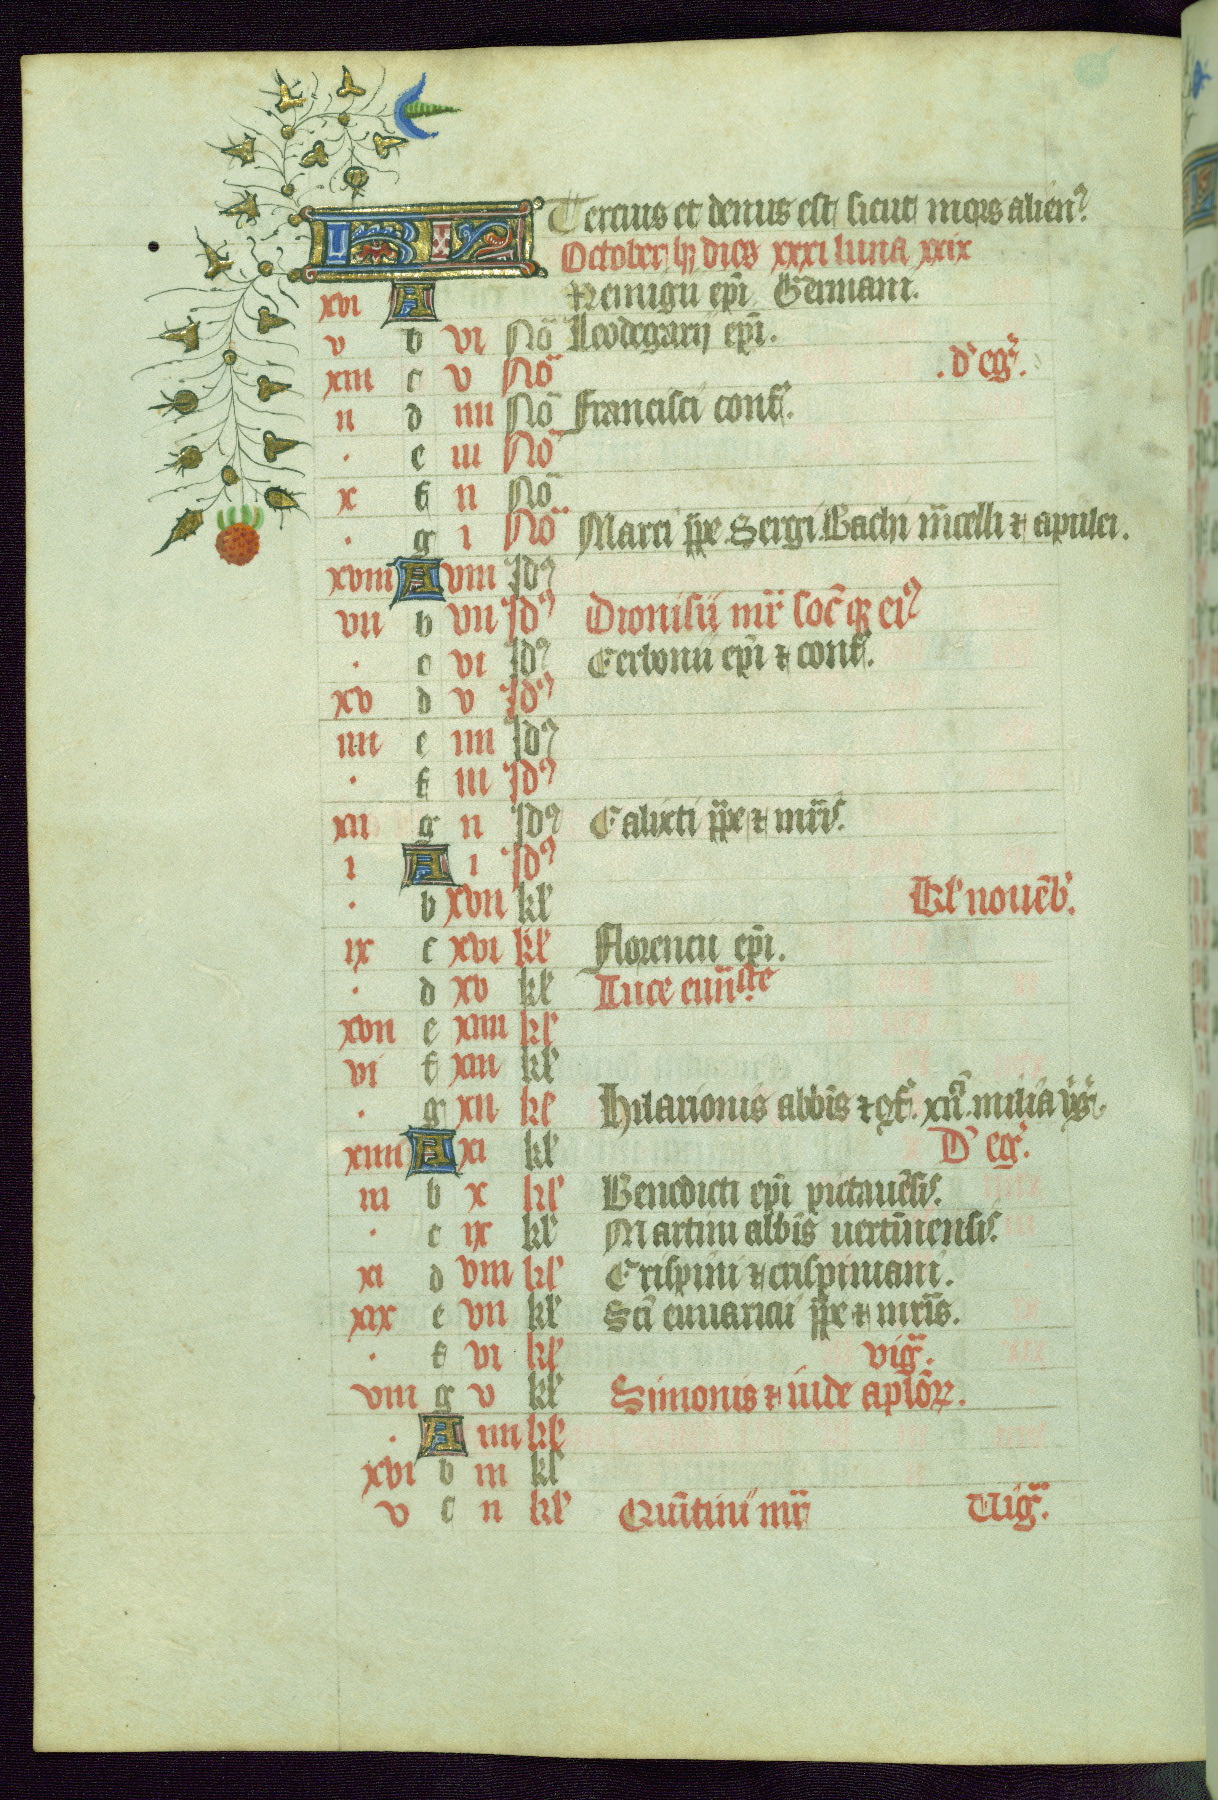 KL Tercius et denus est sicut mors alienꝰ.
October hꝫ dies xxxi luna xxix
xvi A Remigii ep̄i. Germani.
v b vi No᷒ Leodegarij ep̄i.
xiii c v No᷒ . d' eg̃.
ii d iiii No᷒ Francisci conf̃.
. e iii No᷒
x f ii No᷒
. g i No᷒ Marci p̄pe. Sergi. Bachi m̄celli ⁊ apulei.
xviii A viii Idꝰ
vii b vii Idꝰ Dionisii mr̄ soc̄ qꝫ eiꝰ
. c vi Idꝰ Cerbonii ep̄i ⁊ conf̃.
xv d v Idꝰ
iiii e iiii Idꝰ
. f iii Idꝰ
xii g ii Idꝰ Calixti p̄pe ⁊ mr̄is.
i A i Idꝰ
. b xvii kl' Kl' nouēb'.
ix c xvi kl' Florencii ep̄i.
. d xv kl' Luce euu̅ste
xvii e xiiii kl'
vi f xiii kl'
. g xii kl' Hilarionis abb̄is ⁊ xi milia
xiiii A xi kl' D' eg̃.
iii b x kl' Benedicti ep̄i pictauēsis.
. c ix kl' Martini abb̄is uert̄inensis.
xi d viii kl' Crispini ⁊ crispiniani.
xix e vii kl' Sc̄i euuaricii p̄pe ⁊ mr̄is.
. f vi kl' vig̃.
viii g v kl' Simonis ⁊ iude aplōꝝ.
. A iiii kl'
xvi b iii kl'
v c ii kl' Qui̅tini mr̄ Uig̃.